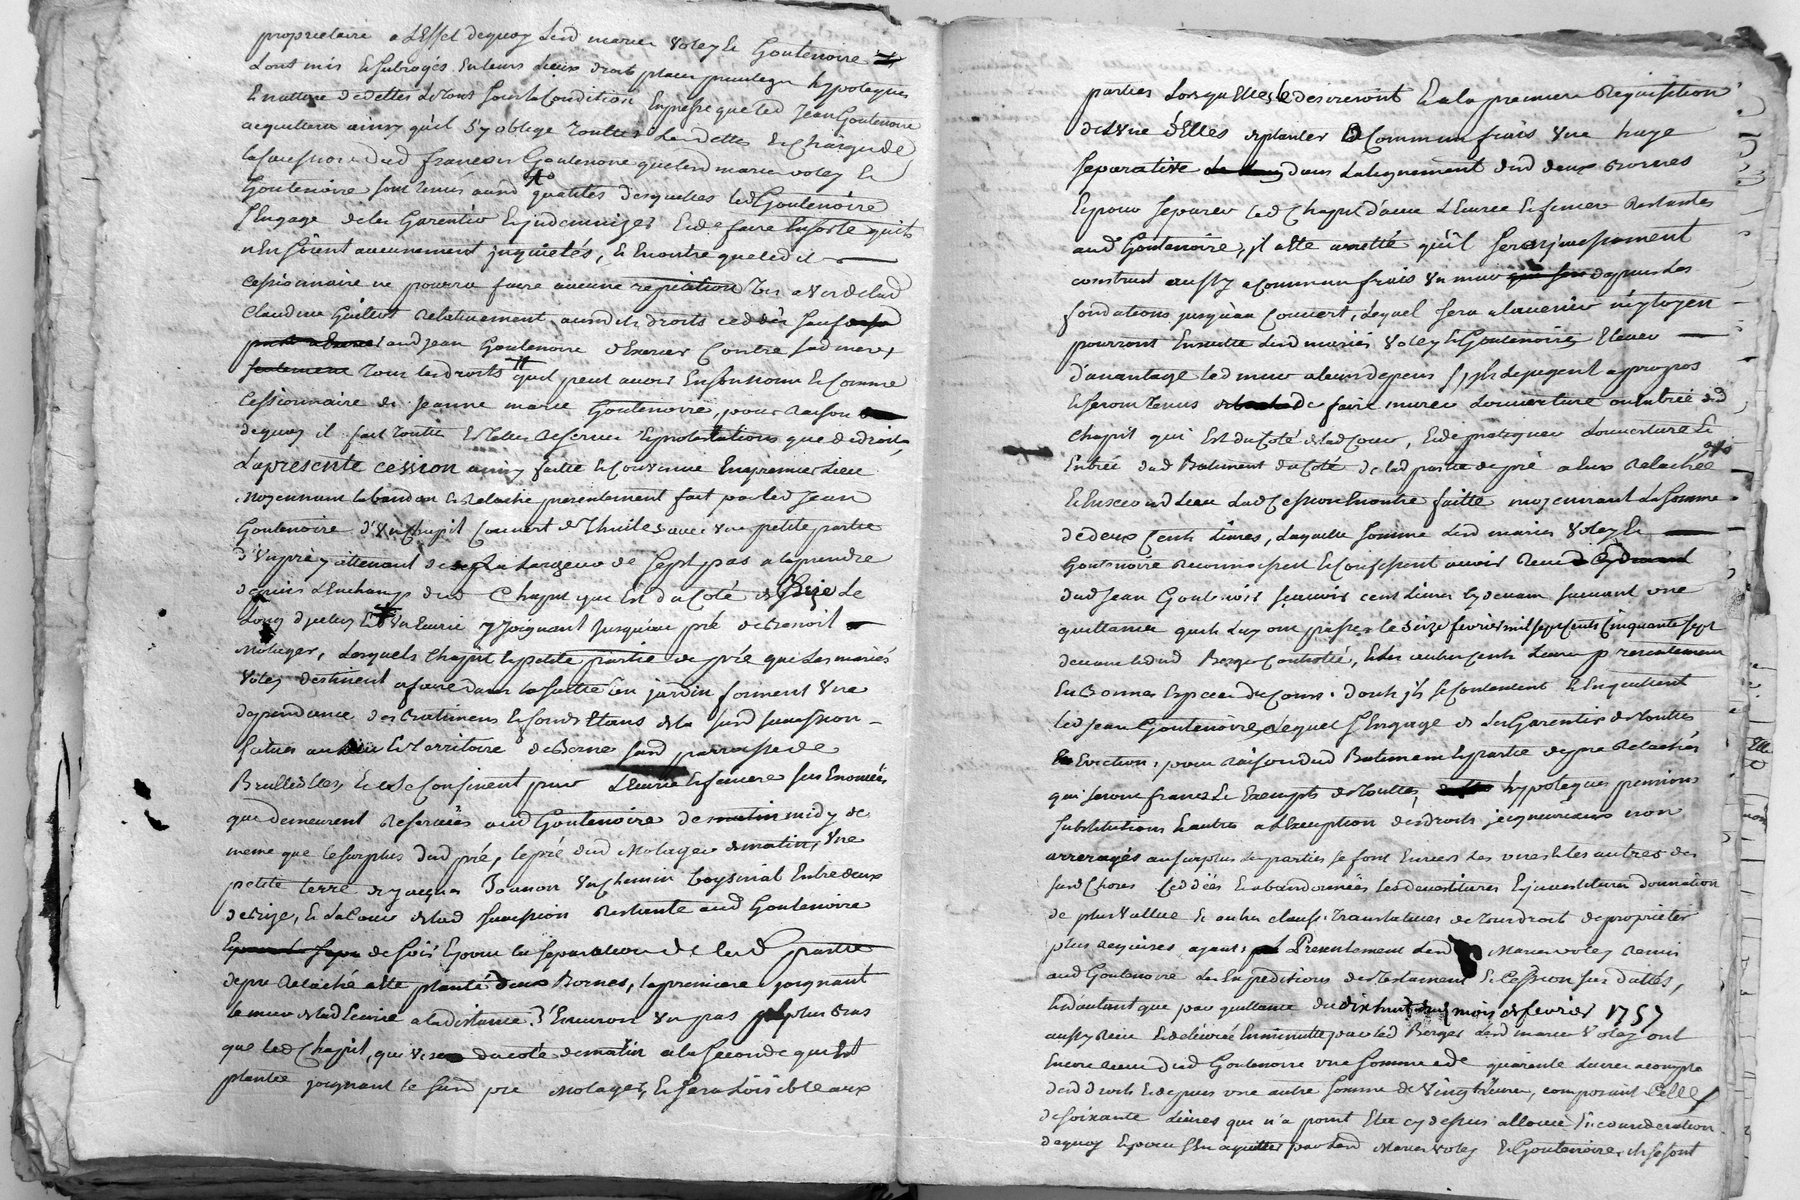 proprietaire a Leffet dequoy Lesd maries Voley et Goutenoire
Lont mis et subrogés en leurs Lieux droits places privileges hypoteques
et nature de dettes le tout sous la Condition expresse que led Jean Goutenoire
acquittera ainsy quil s'y oblige touttes Les dettes et charges de
la succession dud françois Goutenoire que lesd maries voley et
Goutenoire sont tenus aux qualités desquelles led Goutenoire
s'Engage de les Garentir et indemniser et de faire Ensorte quils
n'en soient aucunement inquietés, et encontre que led
cessionnaire ne pourra faire aucune repetition vis a vis de lad
Claudine Guillot relativement auxd droits ceddés sauf
aud jean Goutenoire d'Exercer Contre sad mere
tous les droits quil peut avoir En son nom et Comme
Cessionnaire de jeanne marie Goutenoire, pour raison
dequoy il fait toutte reserves et protestations que de droit,
La presente cession ainsy faitte et Convenue En premier Lieu
moyennant labandon et relache presentement fait par led Jean
Goutenoire d'un Chapit Couvert de Thuiles avec une petite partie
d'un pré y attenant de la Largeur de sept pas a la prendre
depuis L'enchamp dud Chapit qui est du Coté de Bize Le
Long d'jceluy et de l'Ecurie y joignant jusqu'au pré de Benoit
Molager, Lesquels Chapit et petite partie de pré que Les mariés
Voley destinent a faire dans la suitte un jardin forment une
dependance des Batimens et fonds Etans de la susd succession
situés au territoire de Borne susd parroisse de
Brullioles, et se Confinent pour L'Ecurie et feniere sus Enoncées
qui demeurent reservées aud Goutenoire de midy de
meme que le surplus dud pré, le pré dud Molager de matin, Une
petite terre de jacques Bonnon un chemin Loysinal Entre deux
de bize, et La Cour de lad succession restante aud Goutenoire
de soir et pour la separation de lad partie
de pré relaché a ete planté deux Bornes, la premiere joignant
le mur de lad Ecurie a la distance d'Environ un pas plus bas
que led Chapit, qui vise du coté de matin a la seconde qui est
plantée joignant le susd pré Molager, et sera Loisible aux
parties Lorsqu'elles le desireront et a la premiere Requisition
de L'une d'Elles de planter a Commun frais une haye
separative dans Lalignement desd deux Bornes
et pour separer led Chapit d'avec L'Ecurie et feniere restantes
aud Goutenoire, il a ete arretté qu'il sera incessament
construit aussy a Commun frais un mur depuis Les
fondations jusqu'au Couvert, Lequel sera a lavenir mitoyen
pourront Ensuitte Lesd mariés Voley et Goutenoire Elever
d'avantage led mur a leurs depens s'ils le jugent apropos
et seront tenus de faire murer Louverture ou Entrée dud
Chapit qui Est du Coté de lad Cour, et de pratiquer Louverture et
Entrée dud Batiment du Coté de lad partie de pré a Eux relachée
et En second Lieu Lad Cession Encontre faitte moyennant La somme
de deux Cents Livres, Laquelle somme Lesd mariés Voley et
Goutenoire reconnoissent et Confessent avoir receu
dud Jean Goutenoire sçavoir cent Livres cy devant suivant une
quittance quils Luy ont passée le Seize fevrier mil sept cents Cinquante sept
devant led Berger Controllé, et Les autres cents Livres presentement
En Bonnes Especes du Cours, dont ils se Contentent et En quittent
led jean Goutenoire, Lequel s'Engage de Les Garentir de touttes
Eviction, pour raison dud Batiment et partie de pré relachés
qui seront francs et Exempts de touttes hypoteques pensions
substitutions et autres a L'Exception des droits seigneuriaux non
arreragés au surplus les parties se font Envers les unes et les autres des
susd Choses Ceddées et abandonnées Les devestitures et investitures donnation
de plus Vallue et autres clauses translatives de tous droit de proprieté
plus requises ayants Presentement Lesd Maries voley remis
aud Goutenoire Les Expeditions des testament et Cession sus dattés,
et d'autant que par quittance du dixhuit dud mois de fevrier 1757
aussy receu et delivrée En minutte par led Berger Lesd maries Voley ont
Encore receu dud Goutenoire une somme de quarente Livres acompte
desd droits et depuis une autre somme de Vingt Livres, composant Celle
de soixante Livres qui n'a point Eté cy dessus allouée En consideration
dequoy et pour s'En aquitter par Lesd Maries Voley et Goutenoire, ils se sont